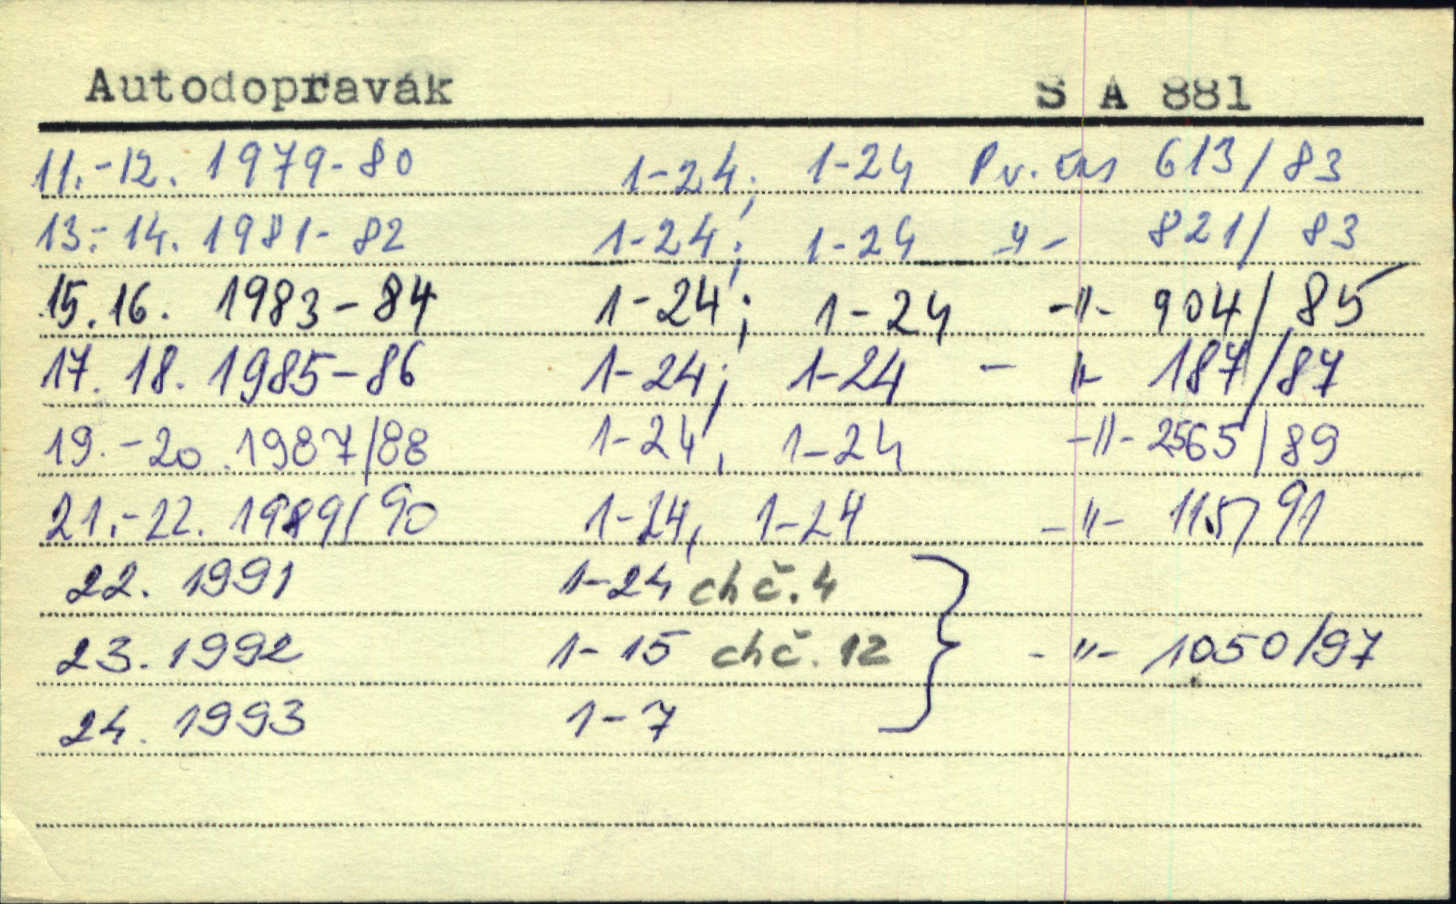 Autodopravák S A 881
11.-12. 1979-80 1-24; 1-24 Pv. čas 613/83
13.-14. 1981-82 1-24; 1-24 -"- 821/83
15.16. 1983-84 1-24; 1-24 -"- 904/85
17. 18. 1985-86 1-24; 1-24 -"- 187/87
19.-20. 1987/88 1-24, 1-24 -"- 2565/89
21.-22. 1989/90 1-24, 1-24 -"- 115/91
22. 1991 1-24 chč. 4
23. 1992 1-15 chč. 12 -"- 1050/97
24. 1993 1-7